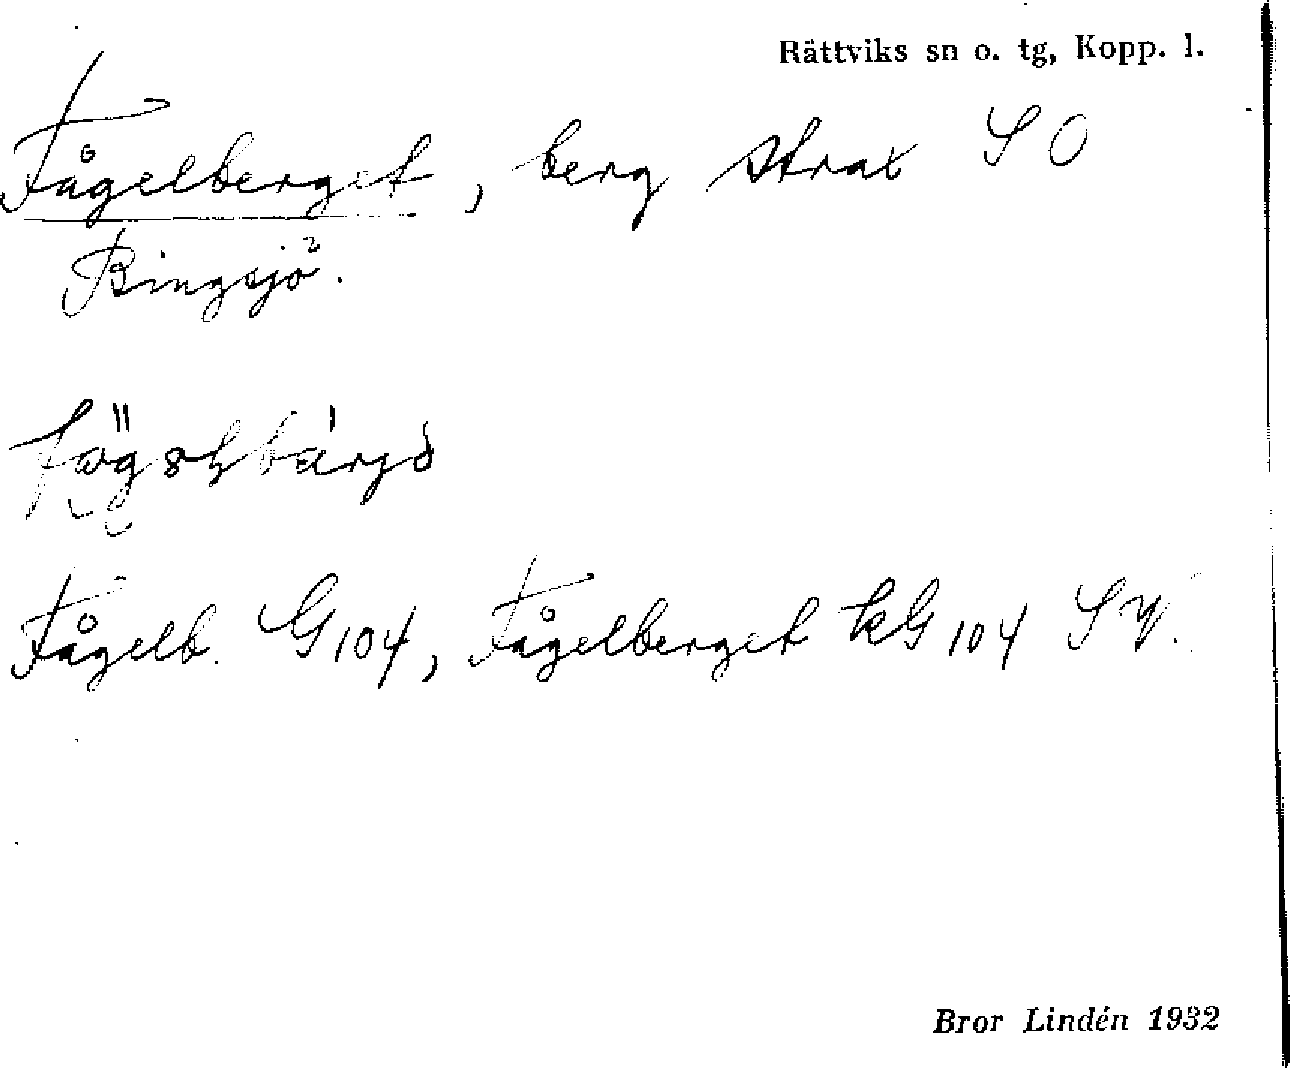 Rättviks sn o. tg, Kopp. l.
Fågelberget, berg strax SO
Bingsjö.
Fågelb. G 104, Fågelberget kG 104 SV.
Bror Lindén 1932